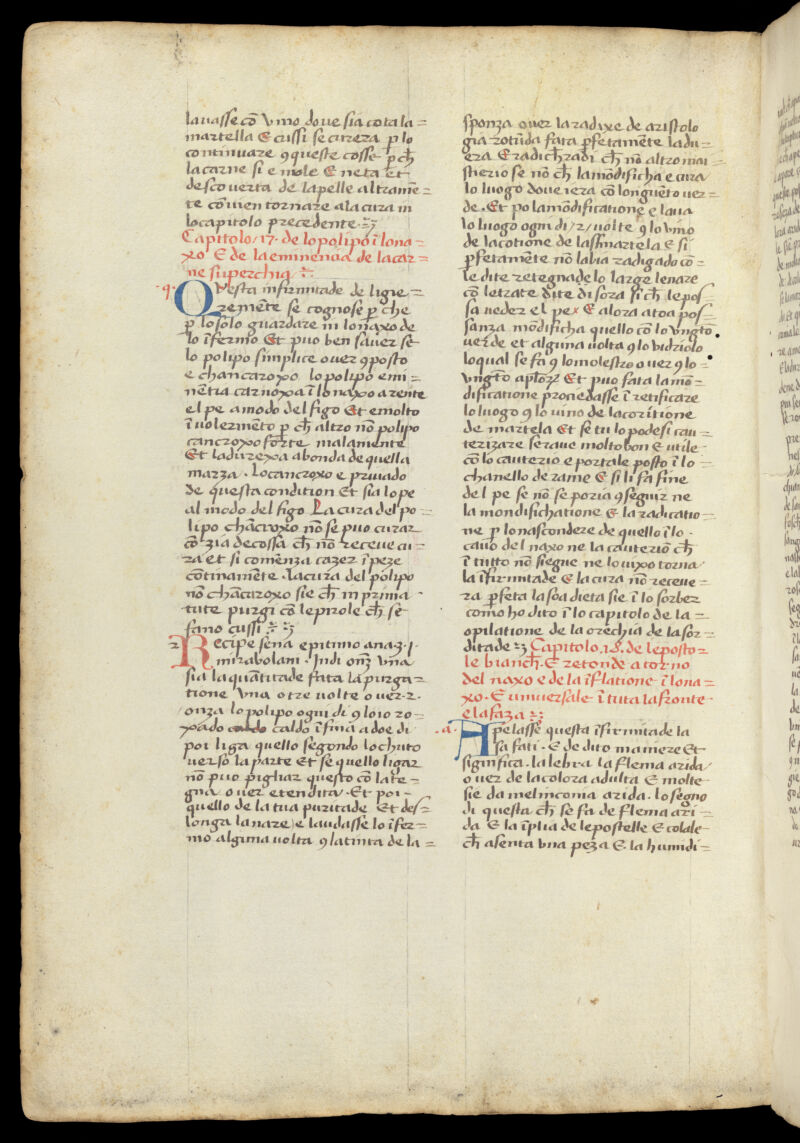 lauasse cō vino doue sia cota la =
martella E cussi se cureza p lo
continuare ꝯqueste cosse p ch̄
la carne si e mole E neta et
descouerta de la pelle altramē =
te cōuien tornare ala cura in
lo capitolo precedente.
Capitolo .17. de lo polipo ī lo na =
xo. E de la eminencia de la car =
ne superchia
.9. Questa infirmitade de ligie =
remēte se cognose p che
p lo solo guardare in lo naxo de
lo īfermo Et puo ben sauer se
lo polipo simplice ouer ꝯposto
e chancaroxo lo polipo emi
nētia carnoxa ī lo naxo arente
el pe a modo del figo Et e molto
ī uolezmēto p ch̄ altro nō polipo
cancroxo forte malamente
Et la durexa abonda de quella
mazza. Lo cancroxo e priuado
de questa condition Et sia lo pe
al modo del figo La cura del po
lipo chācroxo nō se puo curar
cō zia de cossa ch̄ nō receue cu =
ra et si comenza cazer ī peze
cōtinamēte. La cura del polipo
nō chācaroxo sie ch̄ in prima
tute purgi cō le pirole ch̄ se
fano cussi
2 Recipe sena epitimo ana ʒ .j.
mirabolani. Indi onz vna
sia la quātitade fata la purga =
tione vna o tre uolte ouer 2.
onza lo polipo ogni di ꝯ loio ro =
xado caldo caldo īfina a doe di
poi liga quello segondo lo chuto
uerso la parte Et se quello ligar
nō puo pigliar questo cō la te =
gna ouer etendita. Et poi =
quello de la tua puritade Et des =
longa la nare e laudasse lo īfer =
mo alguna uolta ꝯ la tinta de la =
sponza ouer la radixe de aristolo
gia rotūda fata pfetamēte la du =
eza E radichzadi ch̄ nō altro mai
stiezio se nō ch̄ la mōdificha e cura
lo luogo doue ieza cō longuēto uer =
de. Et po la mōdificatione e laua
lo luogo ogni di /2/ uolte ꝯ lo vino
de la cotione de lassmartela E si
pfetamēte nō lauia radigado cō =
le dite retegnade lo large le nare
cō le trate dite di sora si ch̄ le pos =
sa ueder el pex E alora atoa pos =
sanza modificha quello cō lo vngtō
uerde et alguna uolta ꝯ lo vidziolo
lo qual se fa ꝯ lo molestro ouer ꝯ lo =
vngtō aplorz Et puo fata la mō =
dificatione prociedasse ī retificare
lo luogo ꝯ lo uino de la coritione
de martela Et se tu lo podesi cau =
terizare seraue molto bon E utile =
cō lo cauterio e portale posto ī lo =
chanello de rame E si li fa fine
del pe se nō se poria ꝯseguir ne
la mondifichatione E la radicatio =
ne p lo nascondere de quello ī lo =
cauo del naxo ne la cauterio ch̄
ī tutto nō siegue ne lo uixo torna
la īfirmitade E la cura nō receue =
ra pfeta la soa dieta sie ī lo sorber
como ho dito ī lo capitolo de la =
opilatione de la orechia de la sor =
ditade Capitolo .18. de le posto =
le bianch̄. E retonde atorno
del naxo e de la īflatione ī lo na =
xo. E vniuersale ī tuta la fronte =
e la faza
.a. Apelasse questa īfirmitade la
sa fati. E de dito maniere Et
significa. la lebra la flema arida
ouer de la coloza adulta E molte
sie da melinconia arida. lo segno
di questa ch̄ se fa de flema ari =
da E la īplia de le postelle E colale =
ch̄ asenta vna peza E la humidi =